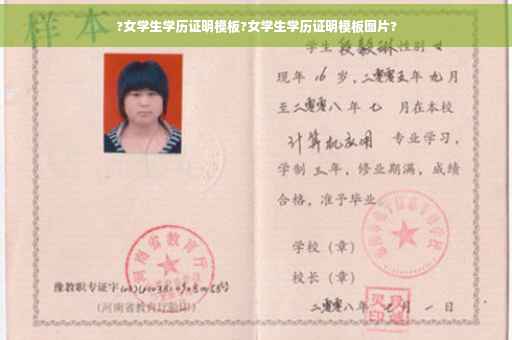 ?女学生学历证明模板?女学生学历证明模板图片?
样本
学生段毅琳性别女
现年16岁，二零零五年九月
至二零零八年七 月在本校
计算机应用 专业学习，
学制三年，修业期满，成绩
合格，准予毕业
学校（章）
校长（章）
二零零八年 月一日
河南省教育厅
豫教职专证字
（河南省教育厅验印）